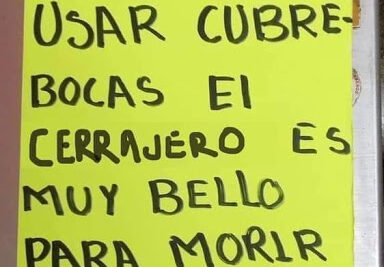 USAR CUBRE-
BOCAS El
CERRAJERO ES
MUY BELLO
PARA MORIR